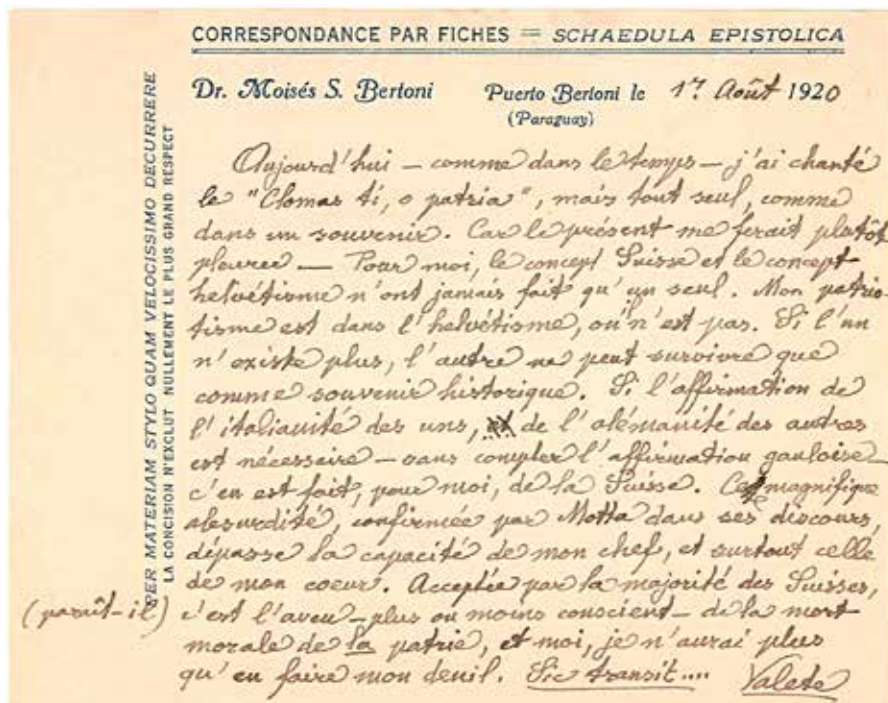 CORRESPONDANCE PAR FICHES = SCHAEDULA EPISTOLICA
Dr. Moisés S. Bertoni Puerto Bertoni le 1er Août 1920
(Paraguay)
PER MATERIAM STYLO QUAM VELOCISSIMO DECURRERE
LA CONCISION N'EXCLUT NULLEMENT LE PLUS GRAND RESPECT
Aujourd'hui – comme dans le temps – j'ai chanté
le "Clomas ti, o patria", mais tout seul, comme
dans un souvenir. Car le présent me ferait plutôt
pleurer — Pour moi, le concept Suisse et le concept
helvétisme n'ont jamais fait qu'un seul. Mon patrio-
tisme est dans l'helvétisme, ou n'est pas. Si l'un
n'existe plus, l'autre ne peut survivre que
comme souvenir historique. Si l'affirmation de
l'italianité des uns, de l'alémanité des autres
est nécessaire – sans compter l'affirmation gauloise –
c'en est fait, pour moi, de la Suisse. Cette magnifique
absurdité, confirmée par Motta dans ses discours,
dépasse la capacité de mon chef, et surtout celle
de mon coeur. Acceptée par la majorité des Suisses,
(paraît-il) c'est l'aveu – plus ou moins conscient – de la mort
morale de la patrie, et moi, je n'aurai plus
qu'en faire mon deuil. Sic transit.... Valete